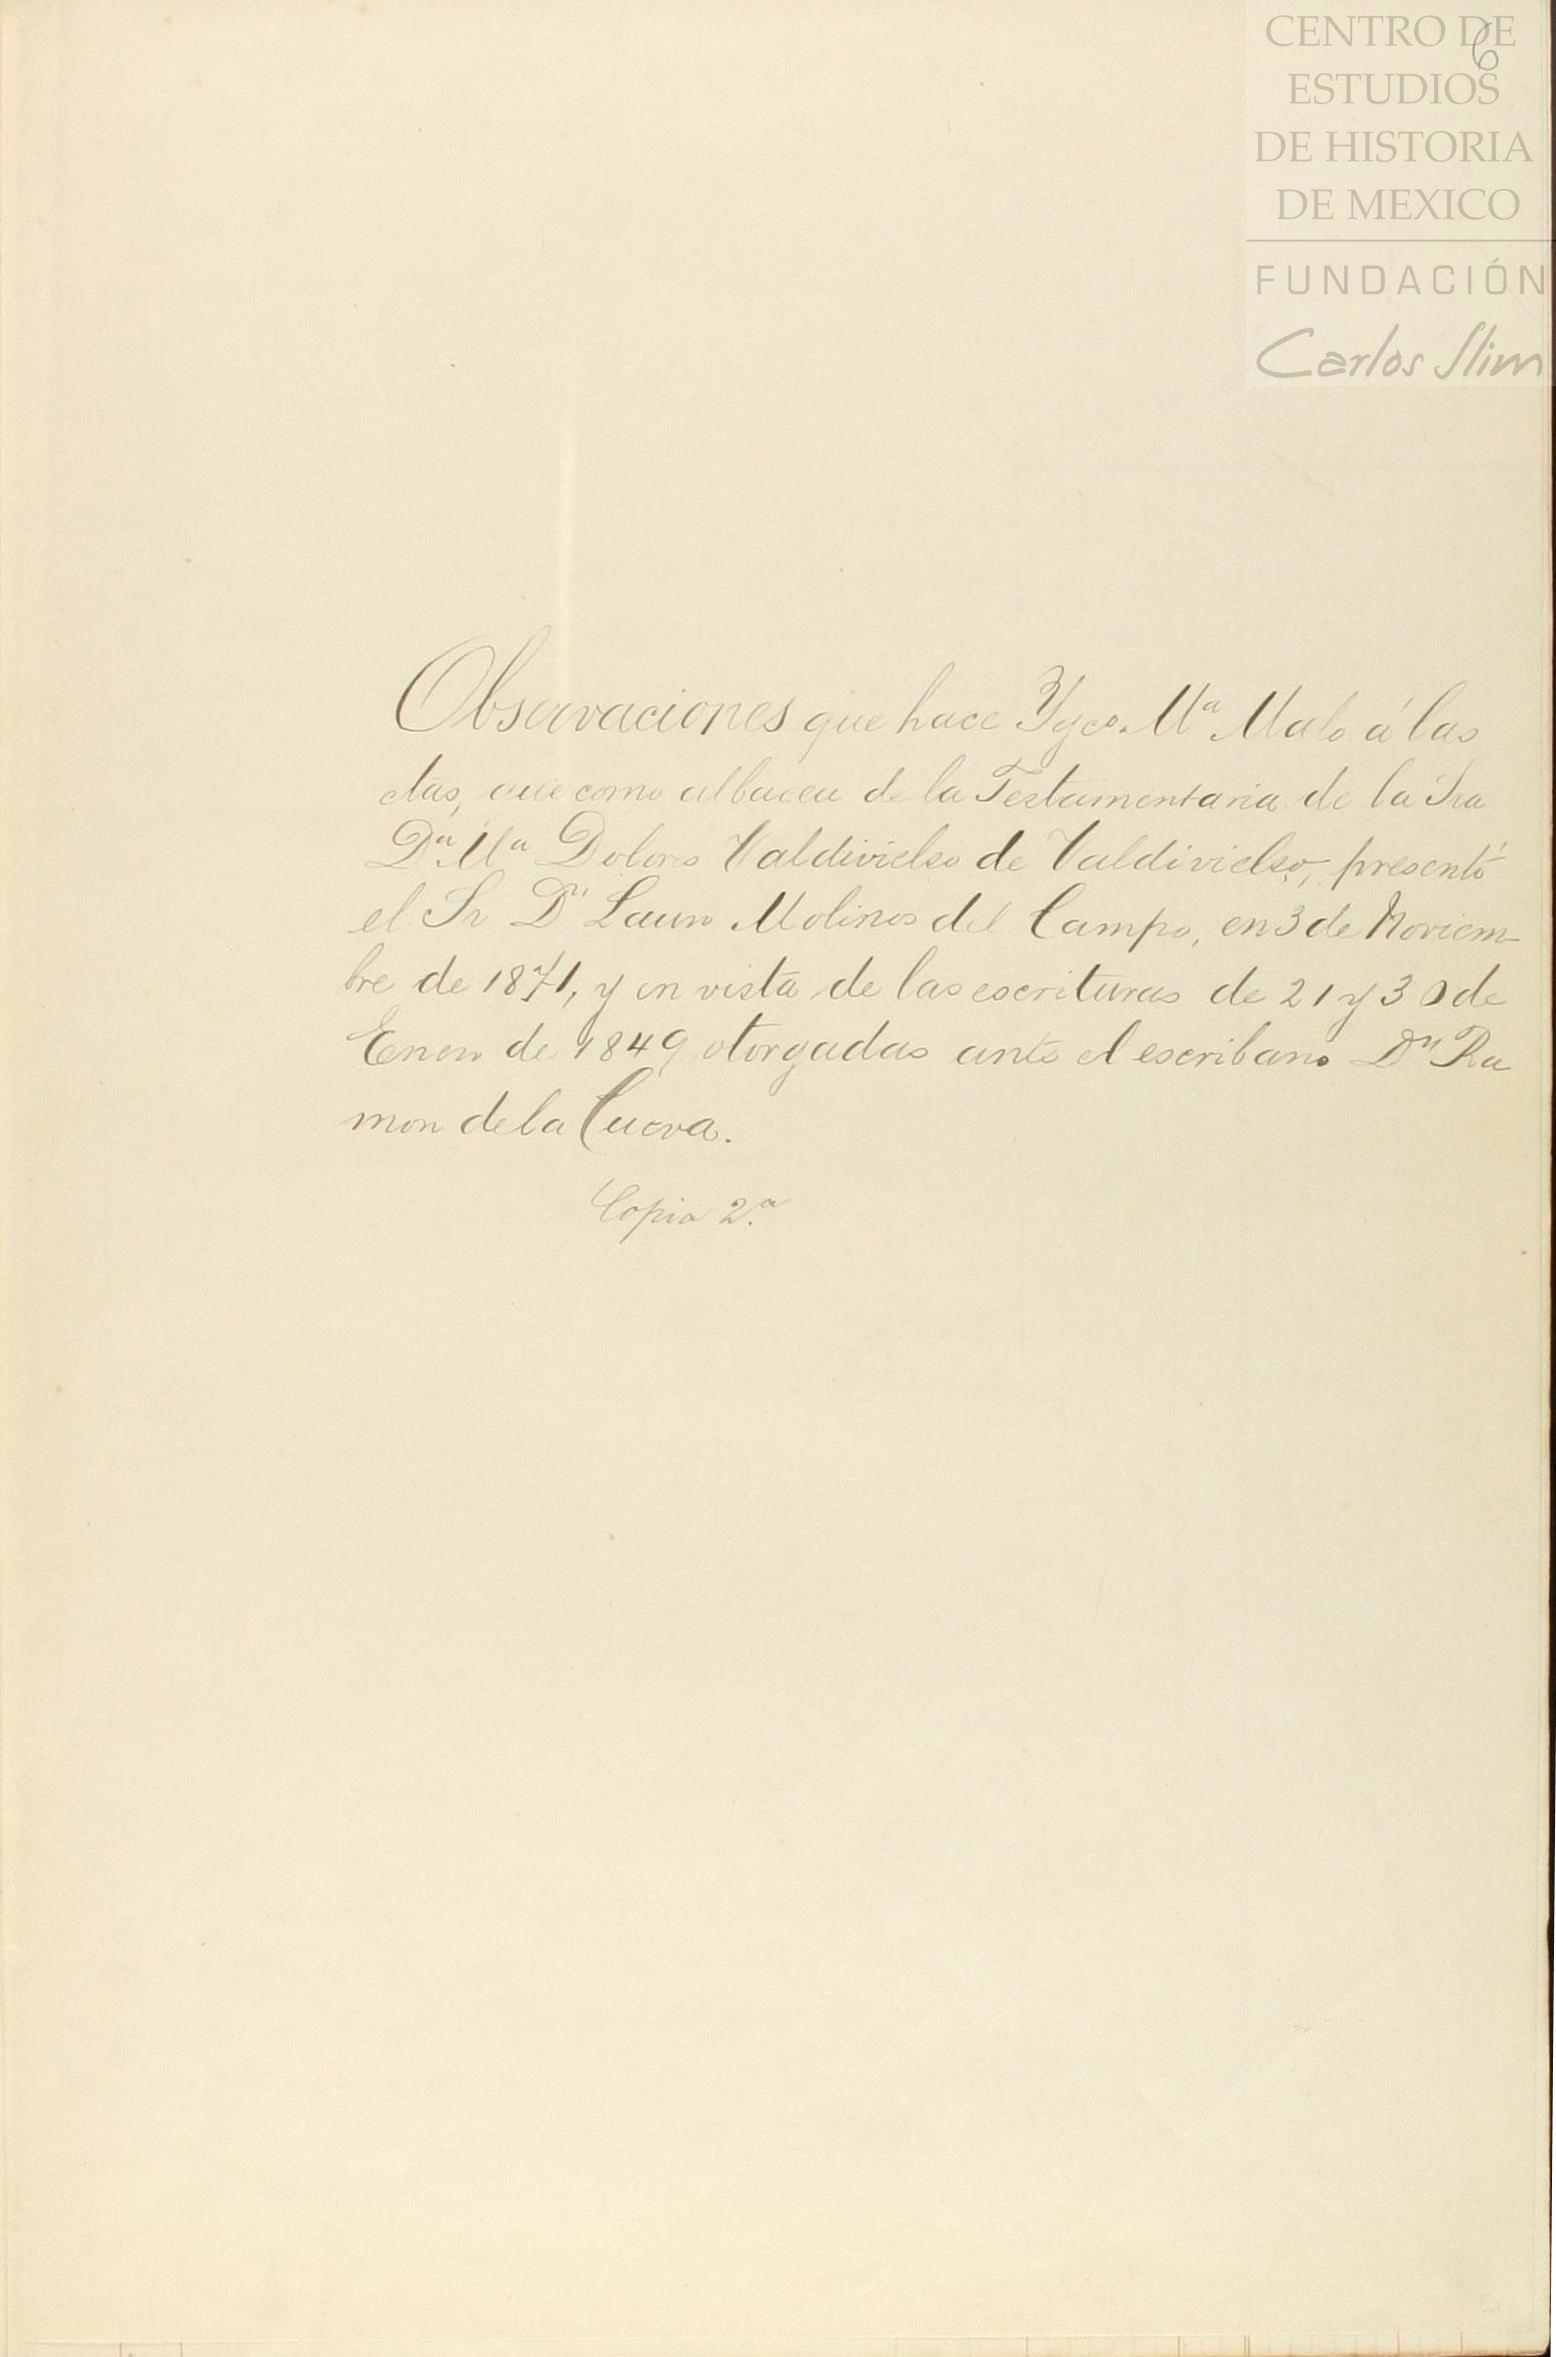 CENTRO DE
ESTUDIOS
DE HISTORIA
DE MEXICO
FUNDACIÓN
Carlos Slim
6
Observaciones que hace Ygco. Mª Malo á las
ctas, que como albacea de la Testamentaria de la Sra
Dª Mª Dolores Valdivielso de Valdivielso, presentó
el Sr Dn Lauro Molinos del Campo, en 3 de Noviem-
bre de 1871, y en vista de las escrituras de 21 y 30 de
Enero de 1849 otorgadas ante el escribano Dn Ra
mon de la Cueva.
Copia 2.ª